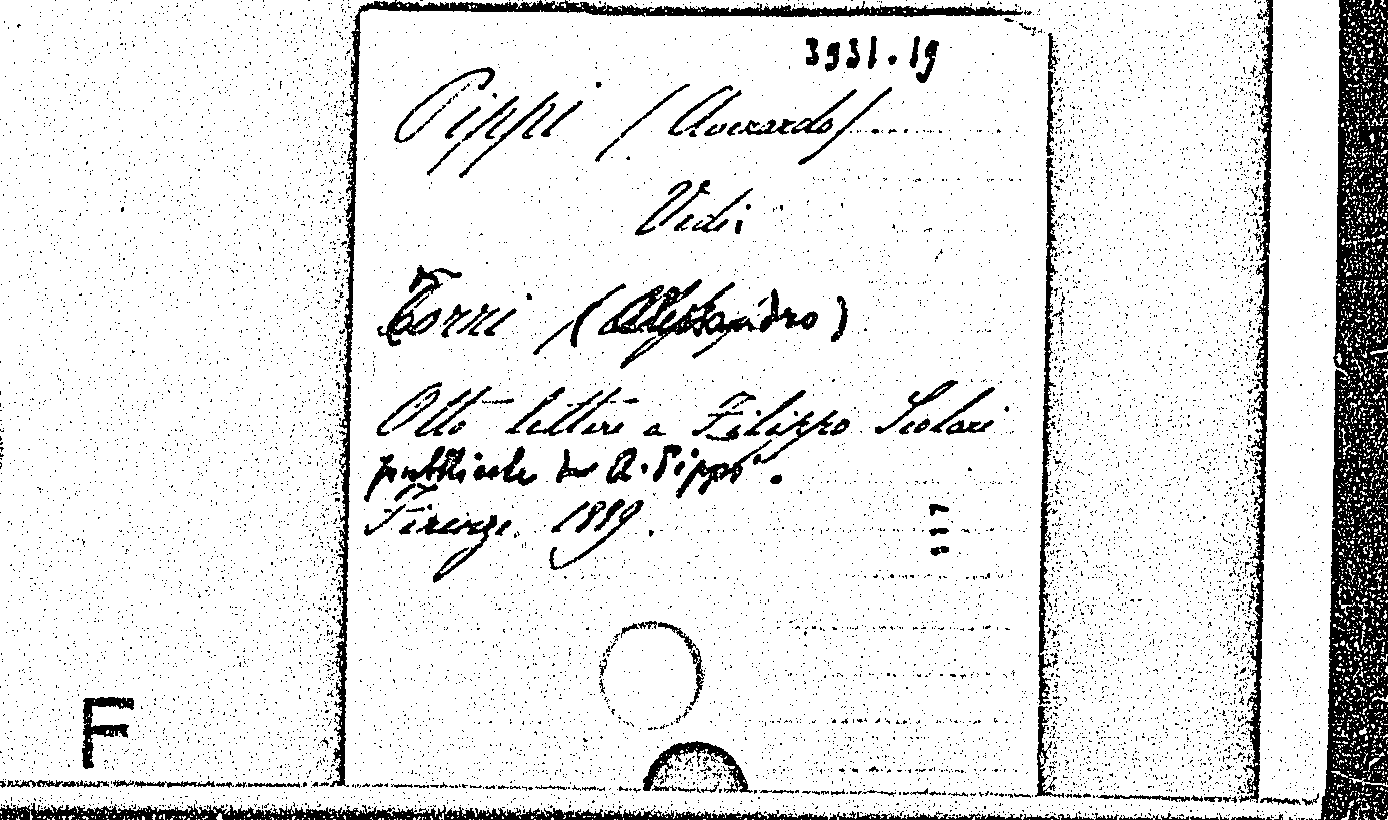 3931.19
Pippi (Averardo)
Vedi:
Torri (Alessandro)
Otto lettere a Filippo Scolari
pubblicate da A. Pippi.
Firenze. 1889.
117
F